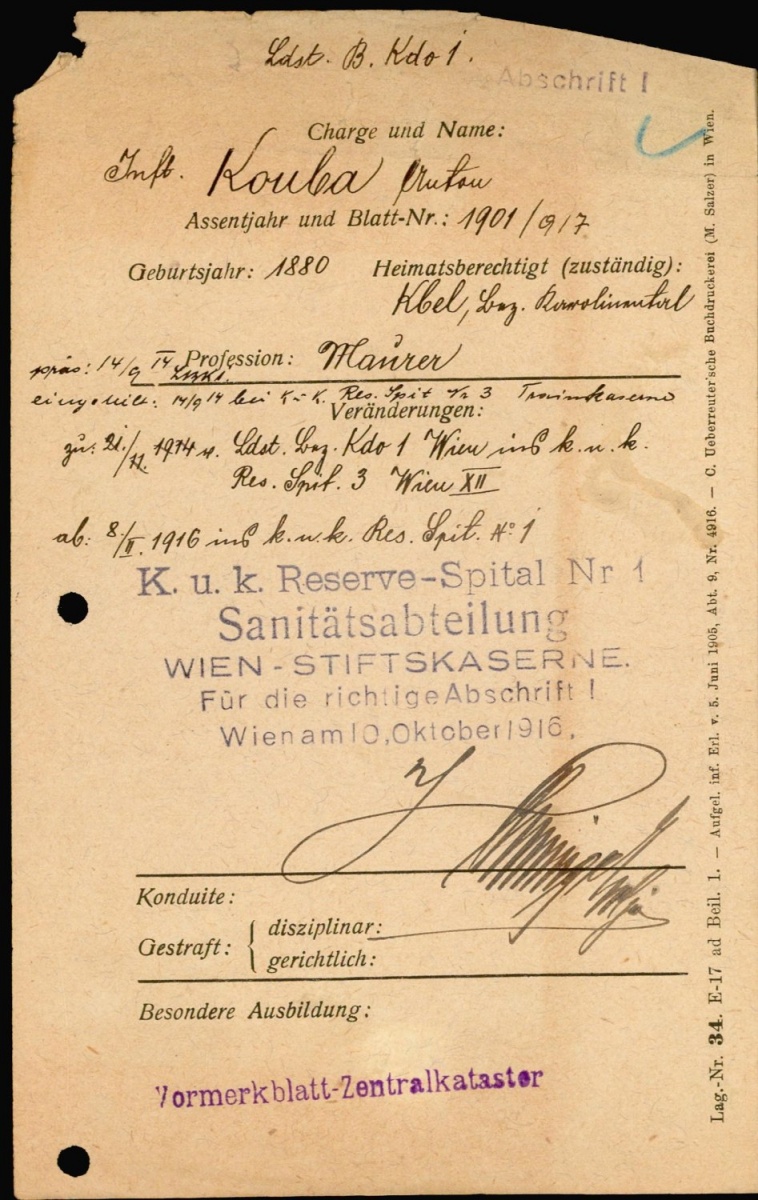 Ldst. B. Kdo 1.
Abschrift !
Charge und Name:
Inft. Kouba Anton
Assentjahr und Blatt-Nr.: 1901/917
Geburtsjahr: 1880 Heimatsberechtigt (zuständig):
Kbel, Bez. Karolinental
präs: 14/9 14 Profession: Maurer
eingeteilt: 14/9 14 bei K. u. K. Res. Spit Nr 3 Trainkaserne
Veränderungen:
zu: 21./11. 1914 v. Ldst. Bez. Kdo 1 Wien ins k. u. k.
Res. Spit. 3 Wien XII
ab: 8./II. 1916 ins k. u. k. Res. Spit. No 1
K. u. k. Reserve-Spital Nr 1
Sanitätsabteilung
WIEN - STIFTSKASERNE.
Für die richtige Abschrift !
Wien am 10, Oktober 1916,
Konduite:
Gestraft: disziplinar:
gerichtlich:
Besondere Ausbildung:
Vormerkblatt-Zentralkataster
Lag.-Nr. 34. E-17 ad Beil. 1. — Aufgel. inf. Erl. v. 5. Juni 1905, Abt. 9, Nr. 4916. — C. Ueberreuter'sche Buchdruckerei (M. Salzer) in Wien.